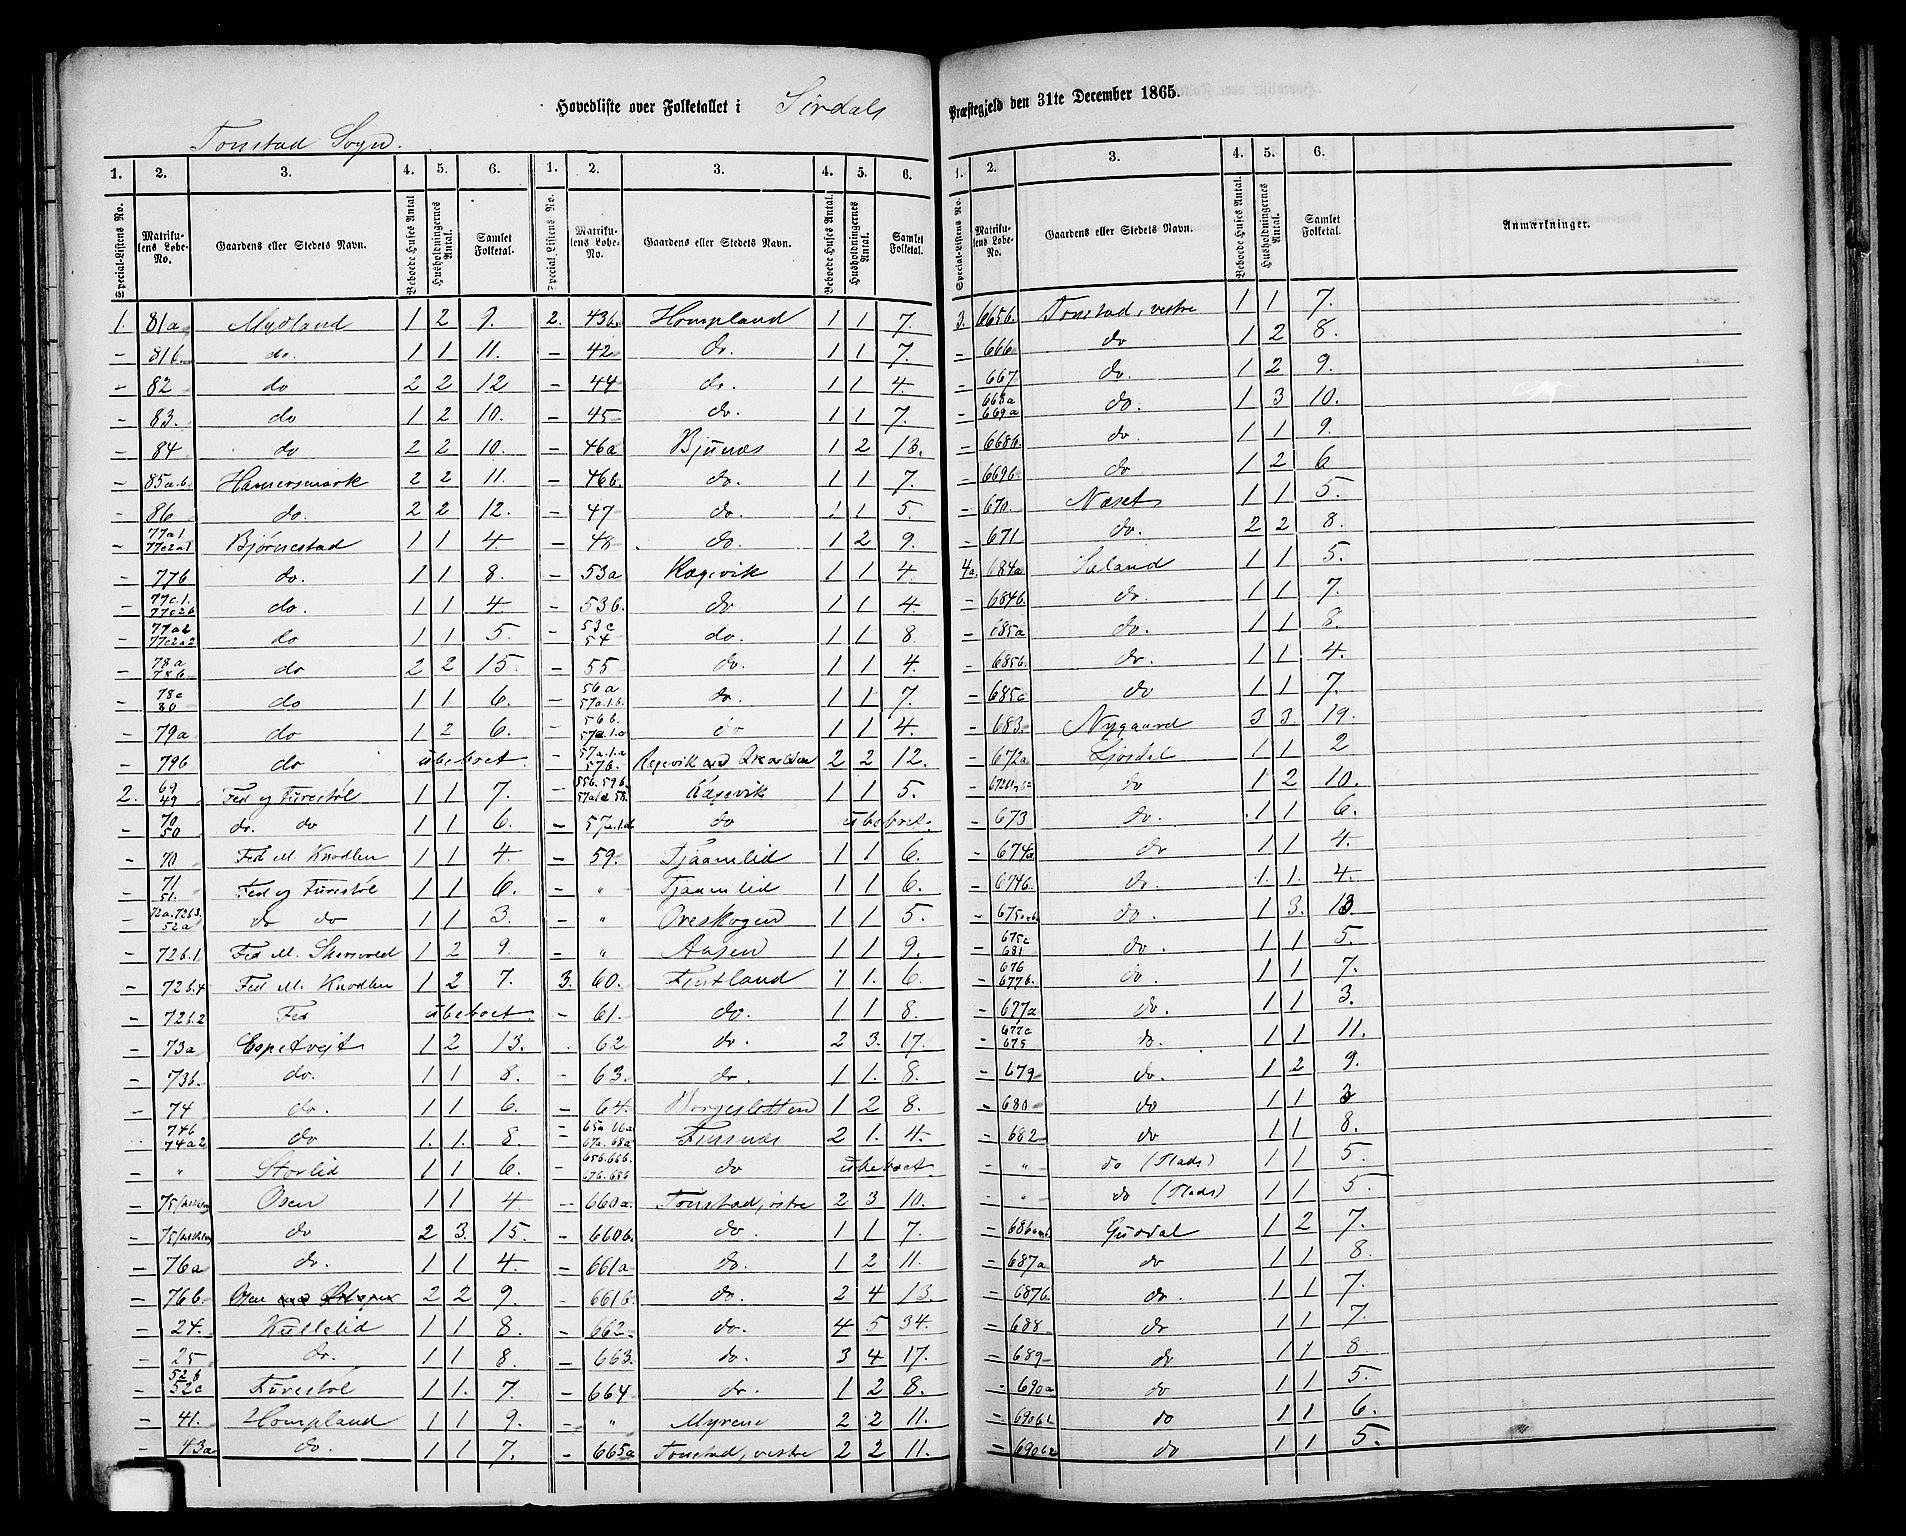 Hovedliste over Folketallet i Sirdals Præstegjeld den 31te December 1865.
Tonstad Sogn.
1. 2. 3. 4. 5. 6. 1. 2. 3. 4. 5. 6.
Special-Listens No. Matrikulens Løbe-No. Gaardens eller Stedets Navn. Beboede Huses Antal. Husholdningernes Antal. Samlet Folketal. Special-Listens No. Matrikulens Løbe-No. Gaardens eller Stedets Navn. Beboede Huses Antal. Husholdningernes Antal. Samlet Folketal.
1. 81a Mydland 1 2 9. 2. 43b. Hompland 1 1 7.
- 81b. do. 1 1 11. - 42 do. 1 1 7.
- 82 do 2 2 12 - 44 do. 1 1 4.
- 83. do 1 2 10. - 45 do. 1 1 7.
- 84 do 2 2 10. - 46a Bjunæs 1 2 13.
- 85a.b. Hamersmark 2 2 11. - 46b. do. 1 1 7.
- 86 do. 2 2 12. - 47 do. 1 1 5.
- 77a1 77c2a1 Bjørnestad 1 1 4. - 48 do. 1 2 9.
- 77b do. 1 1 8. - 53a Kagevik 1 1 4.
- 77c.1. 77c2b do. 1 1 4 - 53b. do 1 1 4.
- 77a2 77c2a2 do 1 1 5. - 53c 54 do. 1 1 8.
- 78a 78b do 2 2 15. - 55 do. 1 1 4.
- 78c 80 do 1 1 6. - 56a 57a.1.b. do. 1 1 7.
- 79a do 1 2 6. - 56b. 57a.1.c do 1 1 4.
- 79b do ubeboet. - 57a.1.a 57b. Kagevik med 2 2 12.
2. 69 49 Fed og Furestøl 1 1 7. Kagevik 1 1 5.
- 70 50 do. do 1 1 6. - 57a.1.d. do ubeboet.
- 70 Fed M. Knodlen 1 1 4. - 59. Tjaamlid 1 1 6.
- 71 51. Fed og Furestøl 1 1 6. - " Tjaamlid 1 1 6.
- 72a.72b3. 52a do do 1 1 3. - " Øreskogen 1 1 5.
- 72b.1. Fed M. 1 2 9. - " Aasen 1 1 9.
- 72b.4 Fed M. Knodlen 1 2 7. 3. 60. Fintland 1 1. 6.
- 72b.2 Fed ubeboet. - 61. do. 1 1 8.
- 73a Espetvejt 1 2 13. 62 do. 2 3. 17.
- 73b. do. 1 1 8. - 63. do. 1 1. 8.
- 74 do. 1 1 6. - 64. Borgesletten 1 2 8.
74b 74a2 do 1. 1. 8. - 65a 66a 67a. 68a Finsnæs 2 1. 4.
- " Storlid 1 1 6. - 65b.66b. 67b.68b do ubeboet.
- 75 Osen 1 1 4 - 660a. Tonstad, østre 2 3 10.
- 75 do 2 3. 15. - 660b. do. 1 1 7.
- 76a do. 1 1 4. - 661a do. 1 2 11.
- 76b. Osen 2 2 9. - 661b. do. 2 4 13.
- 24. Kullelid 1 1 8. - 662 do. 4 5 34.
- 25 do. 1 1 8. - 663. do. 3 4 17.
- 52b 52c Furestøl 1 1. 7. - 664. do. 1 2 8.
- 41. Hompland 1 1 9. - " Myrene 2 2 11.
- 43a do. 1 1 7. - 665a Tonstad, vestre 2 2 11.
1. 2. 3. 4. 5. 6.
Special-Listens No. Matrikulens Løbe-No. Gaardens eller Stedets Navn. Beboede Huses Antal. Husholdningernes Antal. Samlet Folketal. Anmærkninger.
3. 665b. Tonstad, vestre 1 1 7.
- 666 do 1 2 8.
- 667 do. 1 2 9.
- 668a 669a do. 1 3 10.
- 668b. do 1 1 9.
- 669b. do 1 2 6
- 670. Næset 1 1 5.
- 671 do. 2 2 8.
4a. 684a Seland 1 1 5.
- 684b. do. 1 1 7.
- 685a do. 1 1 8.
- 685b. do. 1 1 4.
- 685c do 1 1 7.
- 683. Nygaard 3 3. 19.
- 672a Ljosdal 1 1 2
- do 1 2 10.
- 673 do. 1 1 6.
- 674a do 1 1 4.
- 674b. do. 1. 1. 4.
- 675 do. 1 3. 13.
- 675c 681 do. 1 1 5.
- 676 677b. do. 1 1 7.
- 677a do. 1 1 3.
- 677c 678 do. 1 1 11.
- 679 do. 1 2 9.
- 680 do 1 1 3
- 682 do 1 1 8.
- " do (Plads) 1 1 5.
- " do (Plads) 1 1 5.
- 686 Guddal 1 2 7.
- 687a do 1 1 8.
- 687b. do. 1 1 7.
- 688 do 1 1 7.
- 689 do 1 1 8
- 690a do 1 1 5.
- 690b1 do 1 1 6.
- 690b2 do 1 1 5.